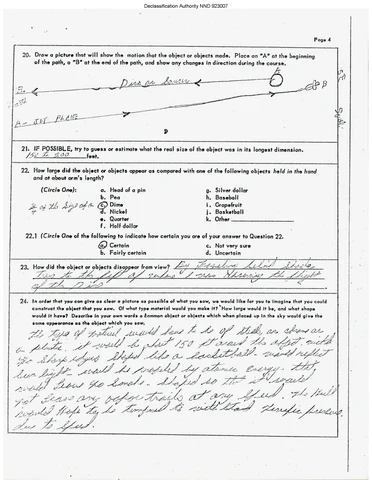 Declassification Authority NND 923007
Page 4
20. Draw a picture that will show the motion that the object or objects made. Place an "A" at the beginning
of the path, a "B" at the end of the path, and show any changes in direction during the course.
A
Disc or Saucer
B
B
A- JET PLANE
21. IF POSSIBLE, try to guess or estimate what the real size of the object was in its longest dimension.
150 to 200 feet.
22. How large did the object or objects appear as compared with one of the following objects held in the hand
and at about arm's length?
(Circle One): a. Head of a pin g. Silver dollar
b. Pea h. Baseball
of the size of a c. Dime i. Grapefruit
d. Nickel j. Basketball
e. Quarter k. Other
f. Half dollar
22.1 (Circle One of the following to indicate how certain you are of your answer to Question 22.
a. Certain c. Not very sure
b. Fairly certain d. Uncertain
23. How did the object or objects disappear from view? By
to the left of I was the flight
of the Disc
24. In order that you can give as clear a picture as possible of what you saw, we would like for you to imagine that you could
construct the object that you saw. Of what type material would you make it? How large would it be, and what shape
would it have? Describe in your own words a common object or objects which when placed up in the sky would give the
same appearance as the object which you saw.
The type of would have to be of steel, as shown as
a plate, it would be about 150 ft around the object with
edges shaped like a basketball. would reflect
Sun light. would be propelled by atomic energy. that
would leave no smoke. Shaped so that it would
not leave any vapor trails at any speed. The Hull
would have to be tempered to withstand terrific pressure
due to speed.